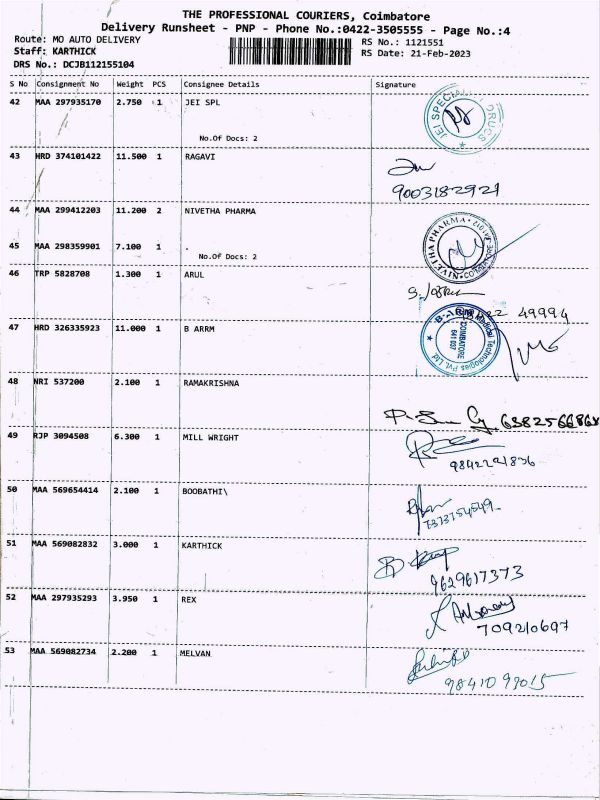 THE PROFESSIONAL COURIERS, Coimbatore
Delivery Runsheet - PNP - Phone No.:0422-3505555 - Page No.:4
Route: MO AUTO DELIVERY RS No.: 1121551
Staff: KARTHICK RS Date: 21-Feb-2023
DRS No.: DCJB112155104
S No Consignment No Weight PCS Consignee Details Signature
42 MAA 297935170 2.750 1 JEI SPL
JEI SPECIAL DRUGS
No.Of Docs: 2
43 HRD 374101422 11.500 1 RAGAVI
9003182921
44 MAA 299412203 11.200 2 NIVETHA PHARMA
NIVETHA PHARMA
45 MAA 298359901 7.100 1 .
No.Of Docs: 2
46 TRP 5828708 1.300 1 ARUL
49994
47 HRD 326335923 11.000 1 B ARRM
B-ARRM Medical Technologies Pvt. Ltd
COIMBATORE
48 NRI 537200 2.100 1 RAMAKRISHNA
638256686
49 RJP 3094508 6.300 1 MILL WRIGHT
9842291836
50 MAA 569654414 2.100 1 BOOBATHI\
51 MAA 569082832 3.000 1 KARTHICK
9629617373
52 MAA 297935293 3.950 1 REX
709210697
53 MAA 569082734 2.200 1 MELVAN
9841099015